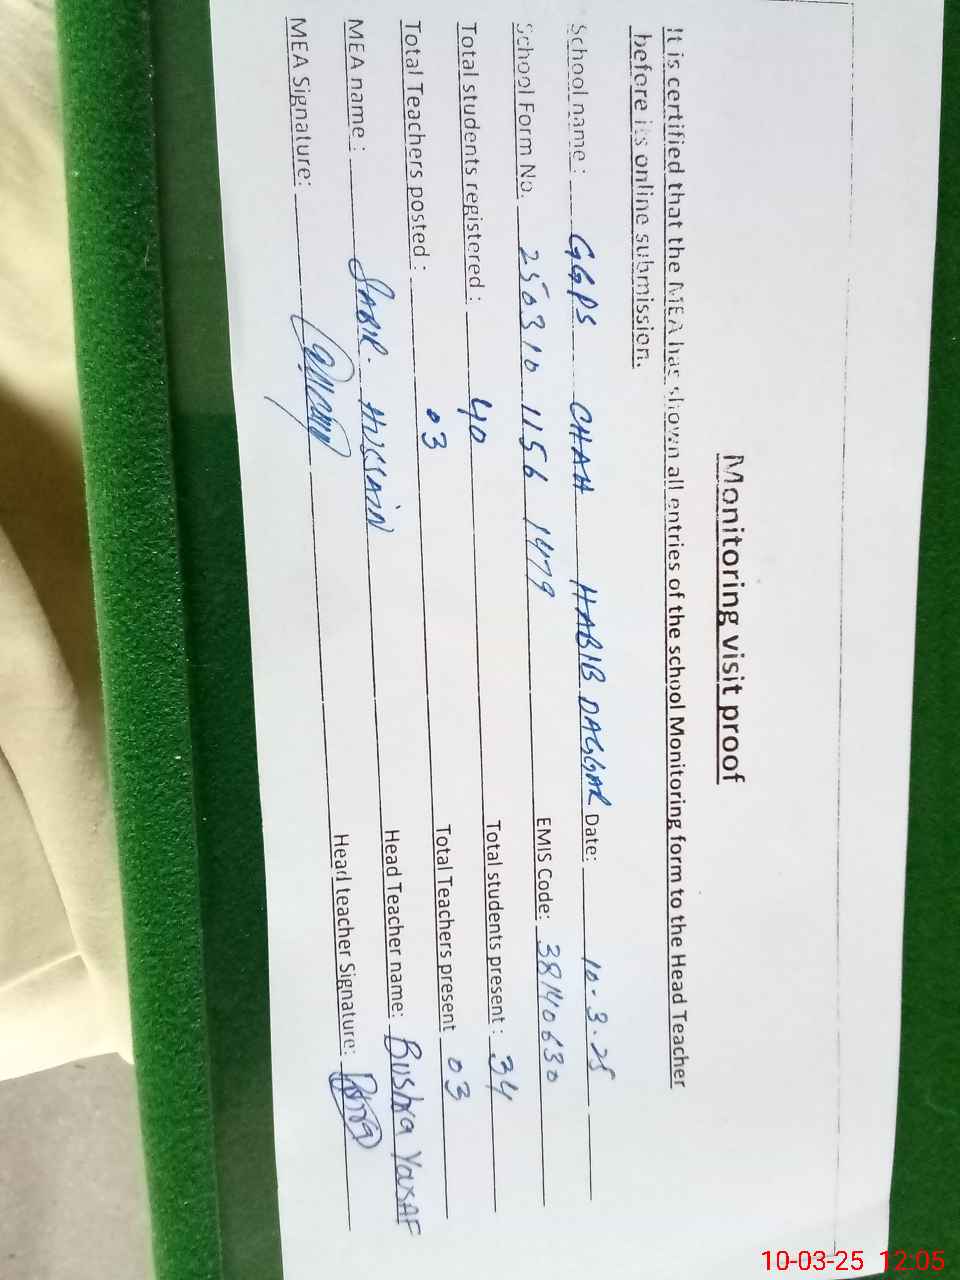 Monitoring visit proof
It is certified that the MEA has shown all entries of the school Monitoring form to the Head Teacher
before its online submission.
School name : GGPS CHAH HABIB DAGGAR Date: 10-3-25
School Form No. 250310 1156 1479 EMIS Code: 38140630
Total students registered : 40 Total students present : 34
Total Teachers posted : 03 Total Teachers present 03
MEA name : SABIR HUSSAIN Head Teacher name: Bushra YousAF
MEA Signature: Head teacher Signature:
10-03-25 12:05